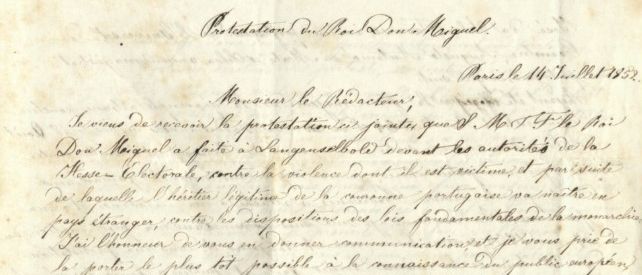 Protestation du Roi Don Miguel.
Paris le 14 Juillet 1852
Monsieur le Rédacteur,
Je viens de recevoir la protestation ci jointe que S M T F le Roi
Don Miguel a faite à Langenselbold devant les autorités de la
Hesse-Électorale, contre la violence dont il est victime et par suite
de laquelle l'héritier légitime de la couronne portugaise va naître en
pays étranger, contre les dispositions des lois fondamentales de la monarchie
J'ai l'honneur de vous en donner communication, et je vous prie de
la porter le plus tôt possible à la connaissance du public européen,